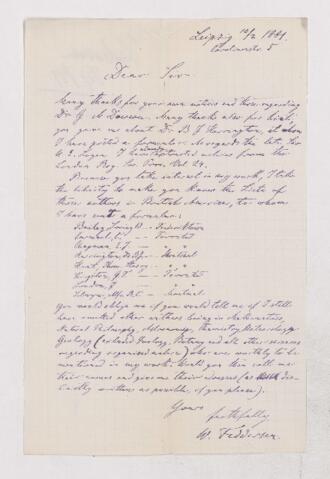 Leipzig 12/2 1881.
Carolinenstr. 5
Dear Sir.
Many thanks for your own notices and those regarding
Dr. J. W. Dawson. Many thanks also for hints
you gave me about Dr. B. J. Harrington, to whom
I have posted a formular. As regards the late Sir
W. E. Logan I have notices from the
London Roy. Soc. Proc. Vol. 24.
Because you take interest in my work, I take
the liberty to make you known the Liste of
those authors in British America, to whom
I have sent a formular:
Bailey, Loring W. – Fredericktown
– Toronto
Chapman, E. J. – " "
Harrington, B. J. – Montreal
Hunt, Thom. Sterry – "
Kingston, G. T. – Toronto
Loudon, J. – "
– Montreal
You would oblige me if you would tell me if I still
have omitted other authors living in Mathematics,
Natural Philosophy, Astronomy, Chemistry, Mineralogy,
Geology (excluded Zoology, Botany and all other sciences
regarding organised nature) who are worthy to be
mentioned in my work. Would you then call me
their names and give me their adresses (as dis-
tinctly written as possible, if you please).
Yours
faithfully
W. Feddersen.